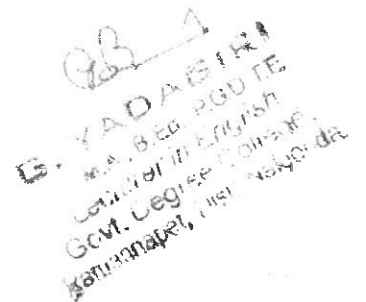 G. YADAGIRI
M.A., B.Ed. PGDTE
Lecturer in English
Govt. Degree College
Dist. Nalgonda